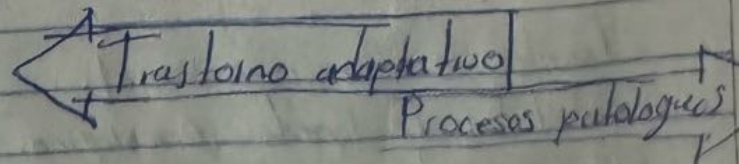 Trastorno adaptativo
Procesos patologicos